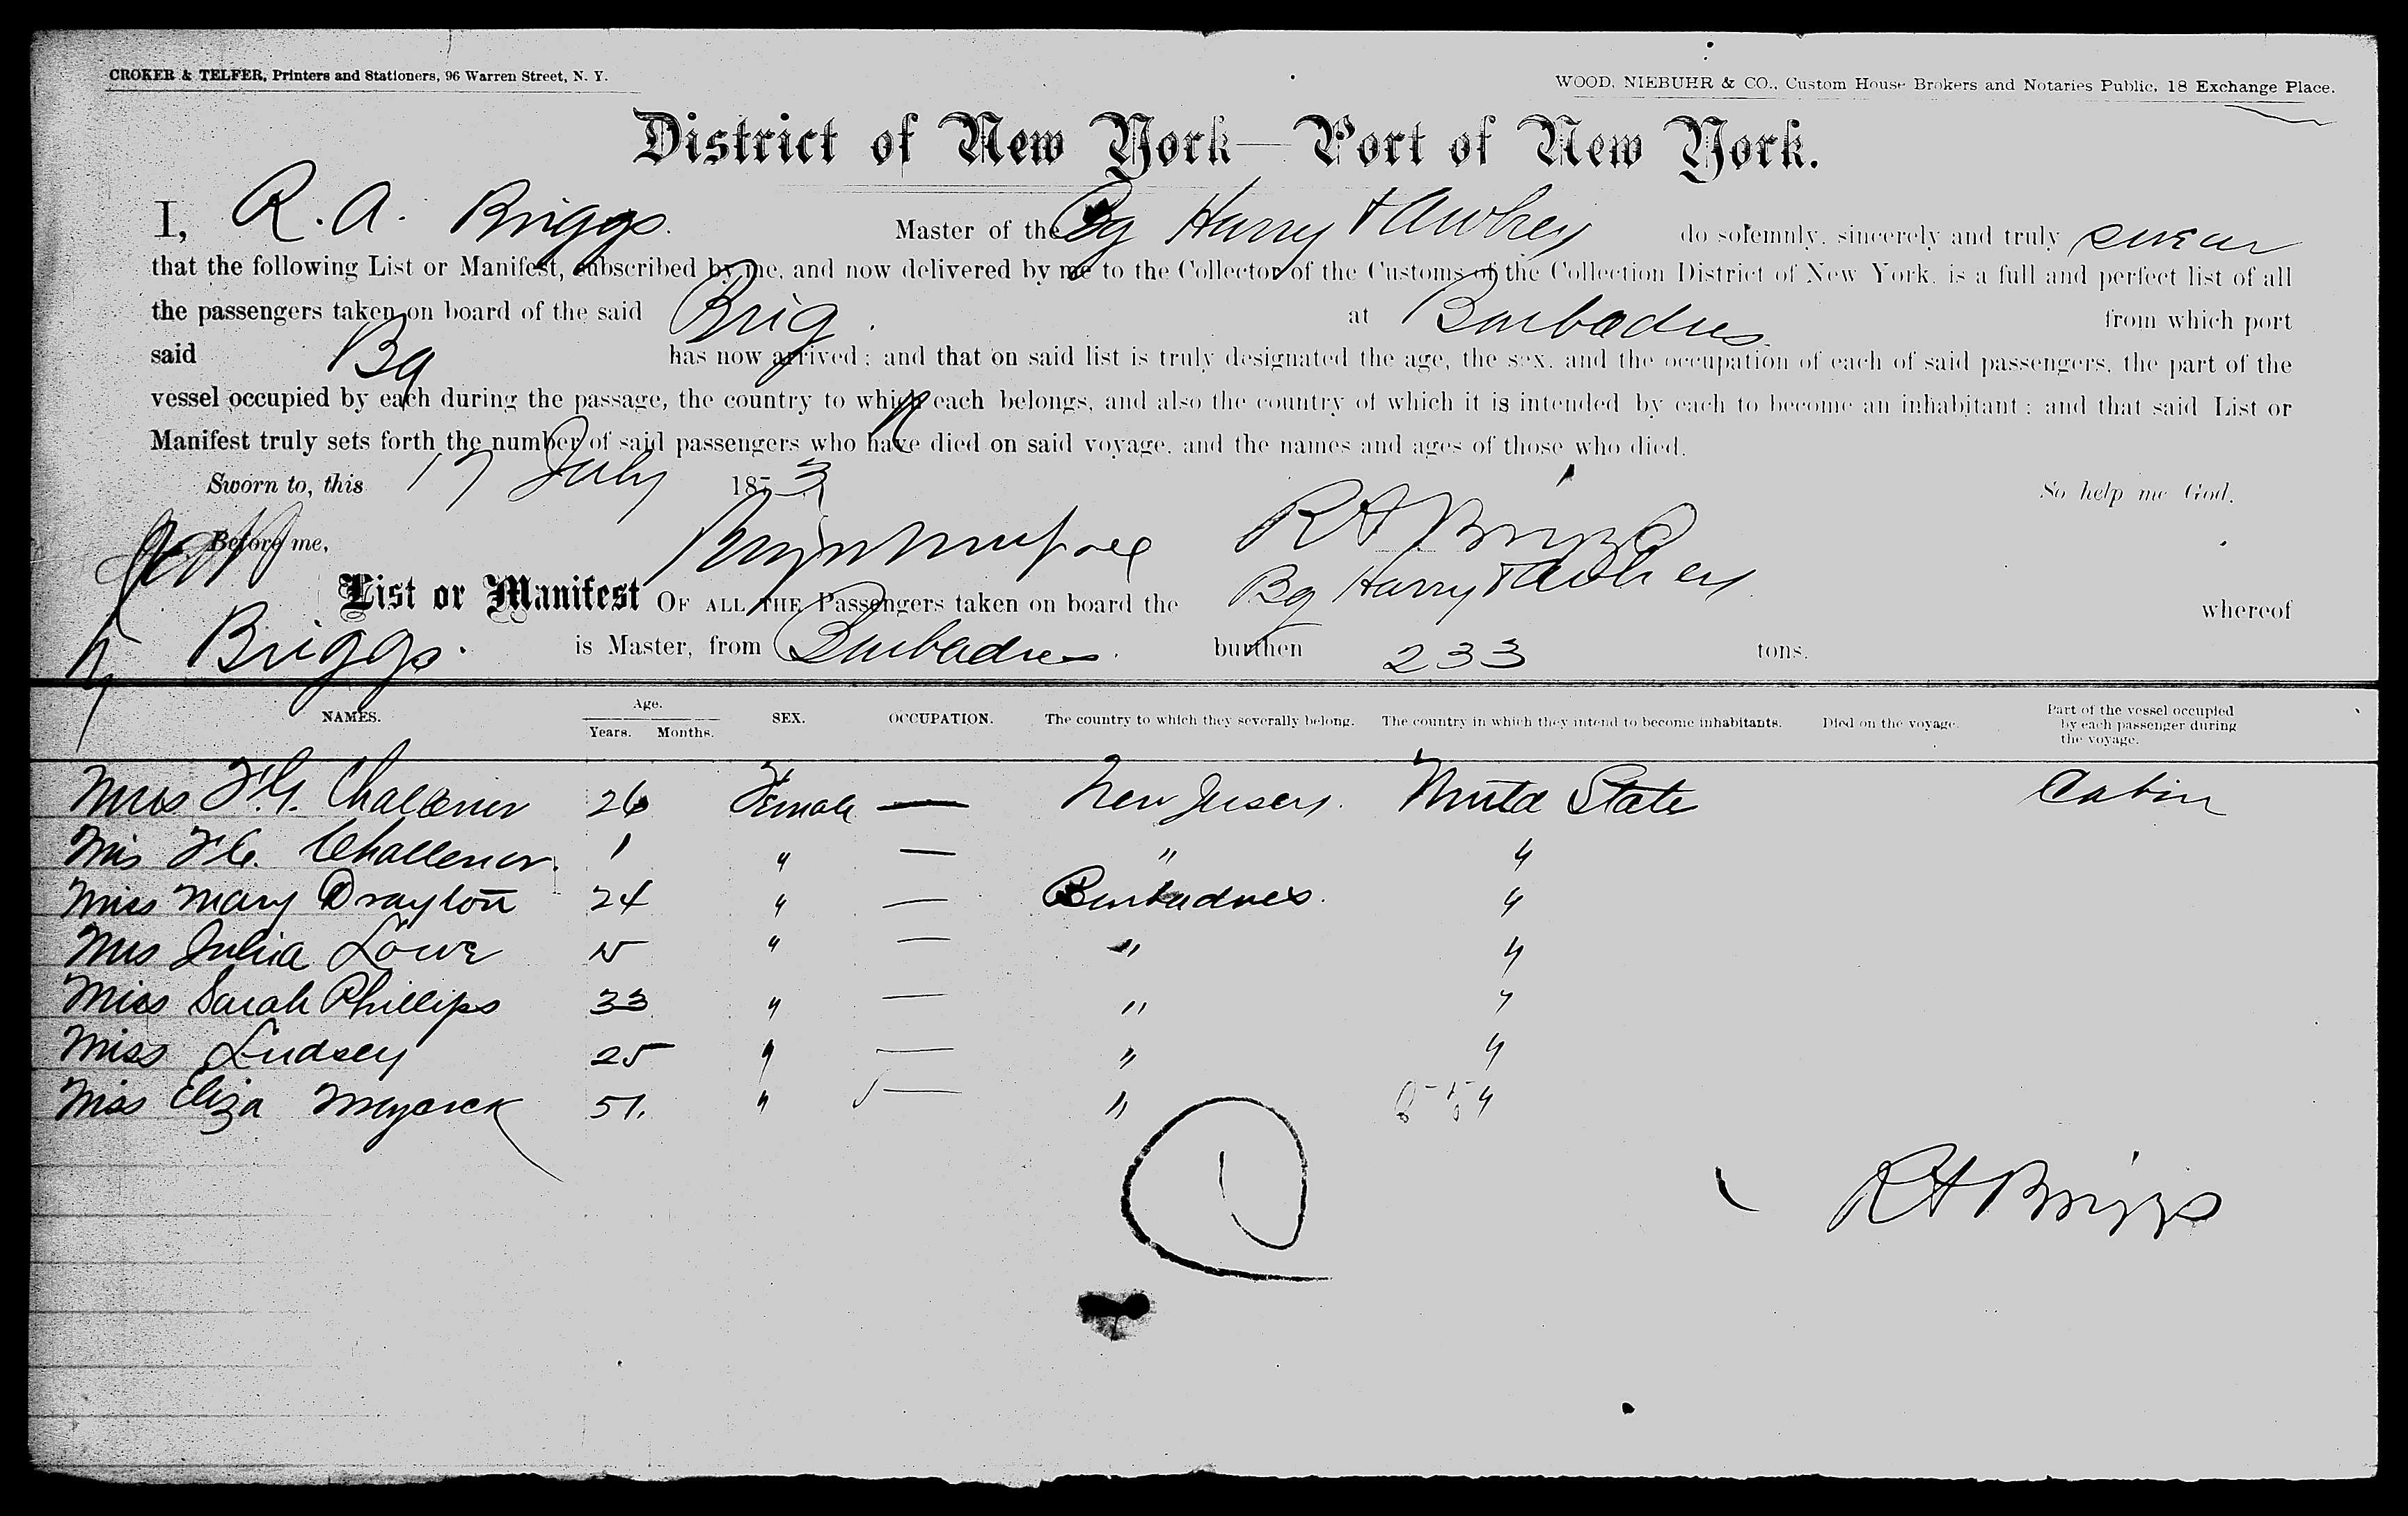 CROKER & TELFER, Printers and Stationers, 96 Warren Street, N. Y.
WOOD, NIEBUHR & CO., Custom House Brokers and Notaries Public, 18 Exchange Place.
District of New York—Port of New York.
I, R. A. Briggs. Master of the Bg Harry & Awbrey do solemnly, sincerely and truly swear
that the following List or Manifest, subscribed by me, and now delivered by me to the Collector of the Customs of the Collection District of New York, is a full and perfect list of all
the passengers taken on board of the said Brig. at Barbadoes from which port
said Bg has now arrived; and that on said list is truly designated the age, the sex, and the occupation of each of said passengers, the part of the
vessel occupied by each during the passage, the country to which each belongs, and also the country of which it is intended by each to become an inhabitant; and that said List or
Manifest truly sets forth the number of said passengers who have died on said voyage, and the names and ages of those who died.
Sworn to, this 17 July 1873 So help me God.
Before me, RA Briggs
List or Manifest OF ALL THE Passengers taken on board the Bg Harry & Awbrey whereof
Briggs. is Master, from Barbadoes. burthen 233 tons.
NAMES. Age. Years. Months. SEX. OCCUPATION. The country to which they severally belong. The country in which they intend to become inhabitants. Died on the voyage. Part of the vessel occupied by each passenger during the voyage.
Mrs Challenor 26 Female — New Jersey. United State Cabin
Challenor. 1 " — " "
Miss Mary Drayton 24 " — Barbadoes. "
Julia Lowe " — " "
Miss Sarah Phillips 33 " — " "
Miss Lindsey 25 " — " "
Miss Eliza 51. " — " "
1
RA Briggs